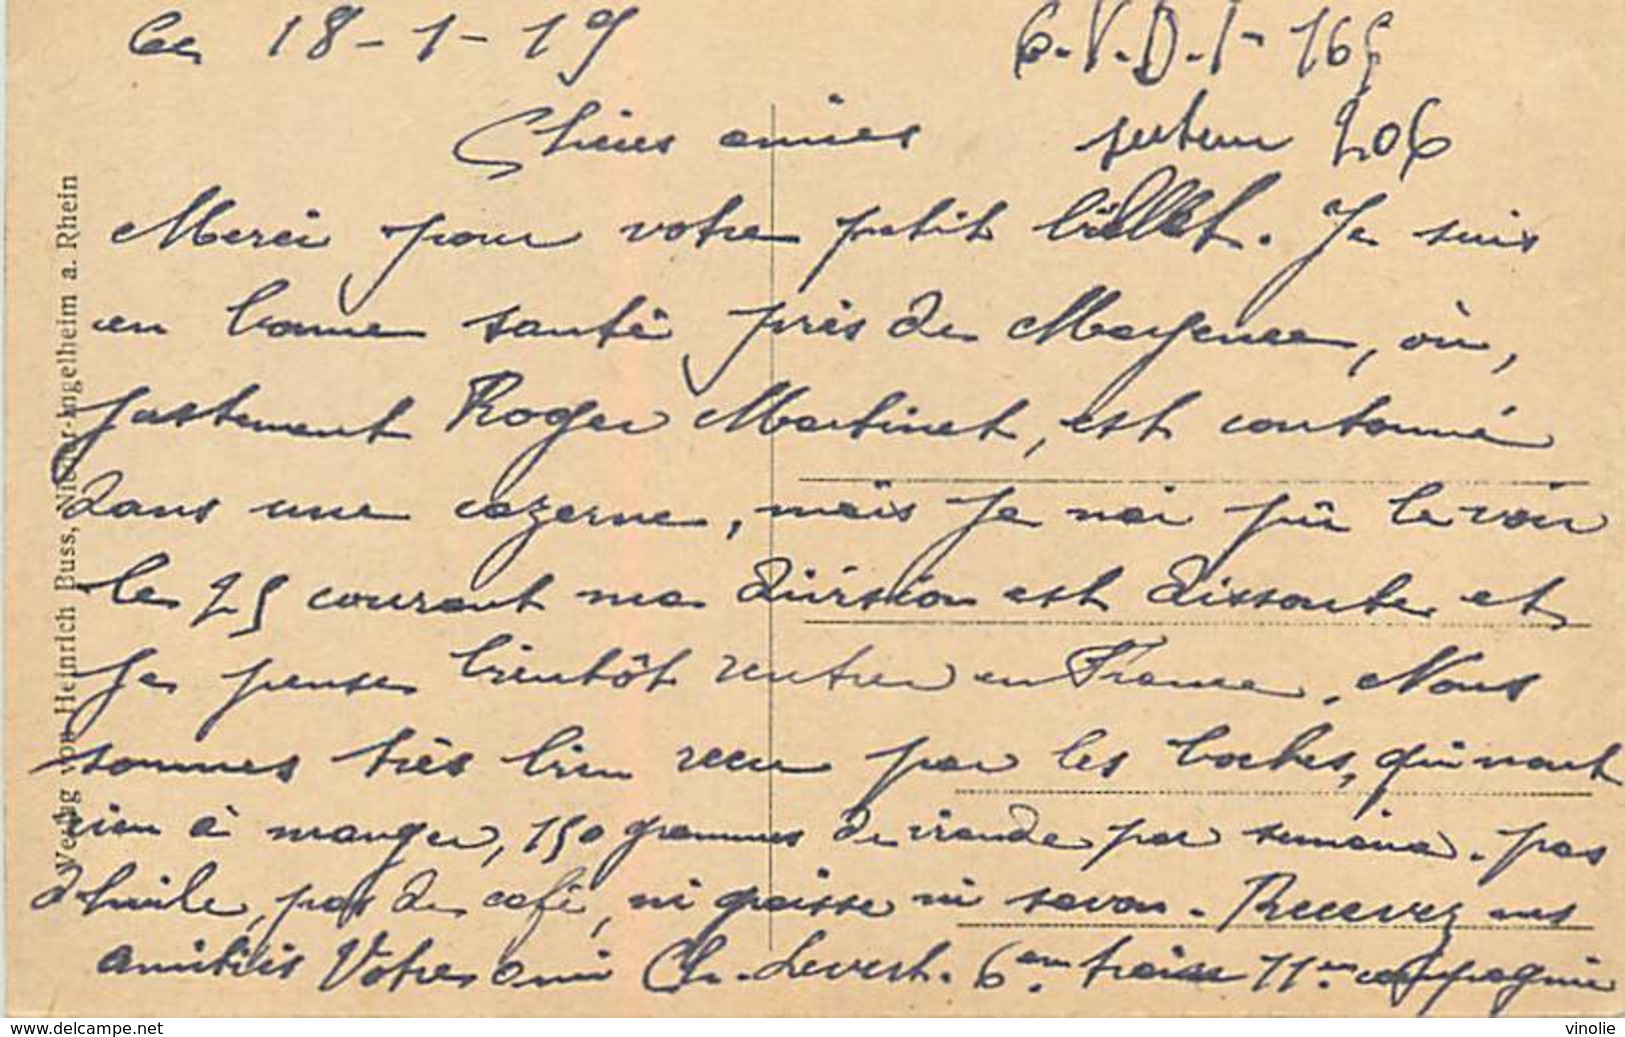 Le 18-1-19
C.V.D.I-165
secteur 206
Chères amies
Merci pour votre petit billet. Je suis
en bonne santé près de Mayence, où,
justement Roger Martinet, est cantonné
dans une cazerne, mais je nai pû le voir
le 25 courant ma division est dissoute et
je pense bientôt rentrer en France. Nous
sommes très bien recu par les boches, qui nont
rien à manger, 150 grammes de viande par semaine. pas
d'huile, pas de café, ni graisse ni savon. Recevez mes
amitiés Votre ami Ch. Levert. 6em 11em compagnie
Verlag von Heinrich Buss, Nieder-Ingelheim a. Rhein
www.delcampe.net
vinolie